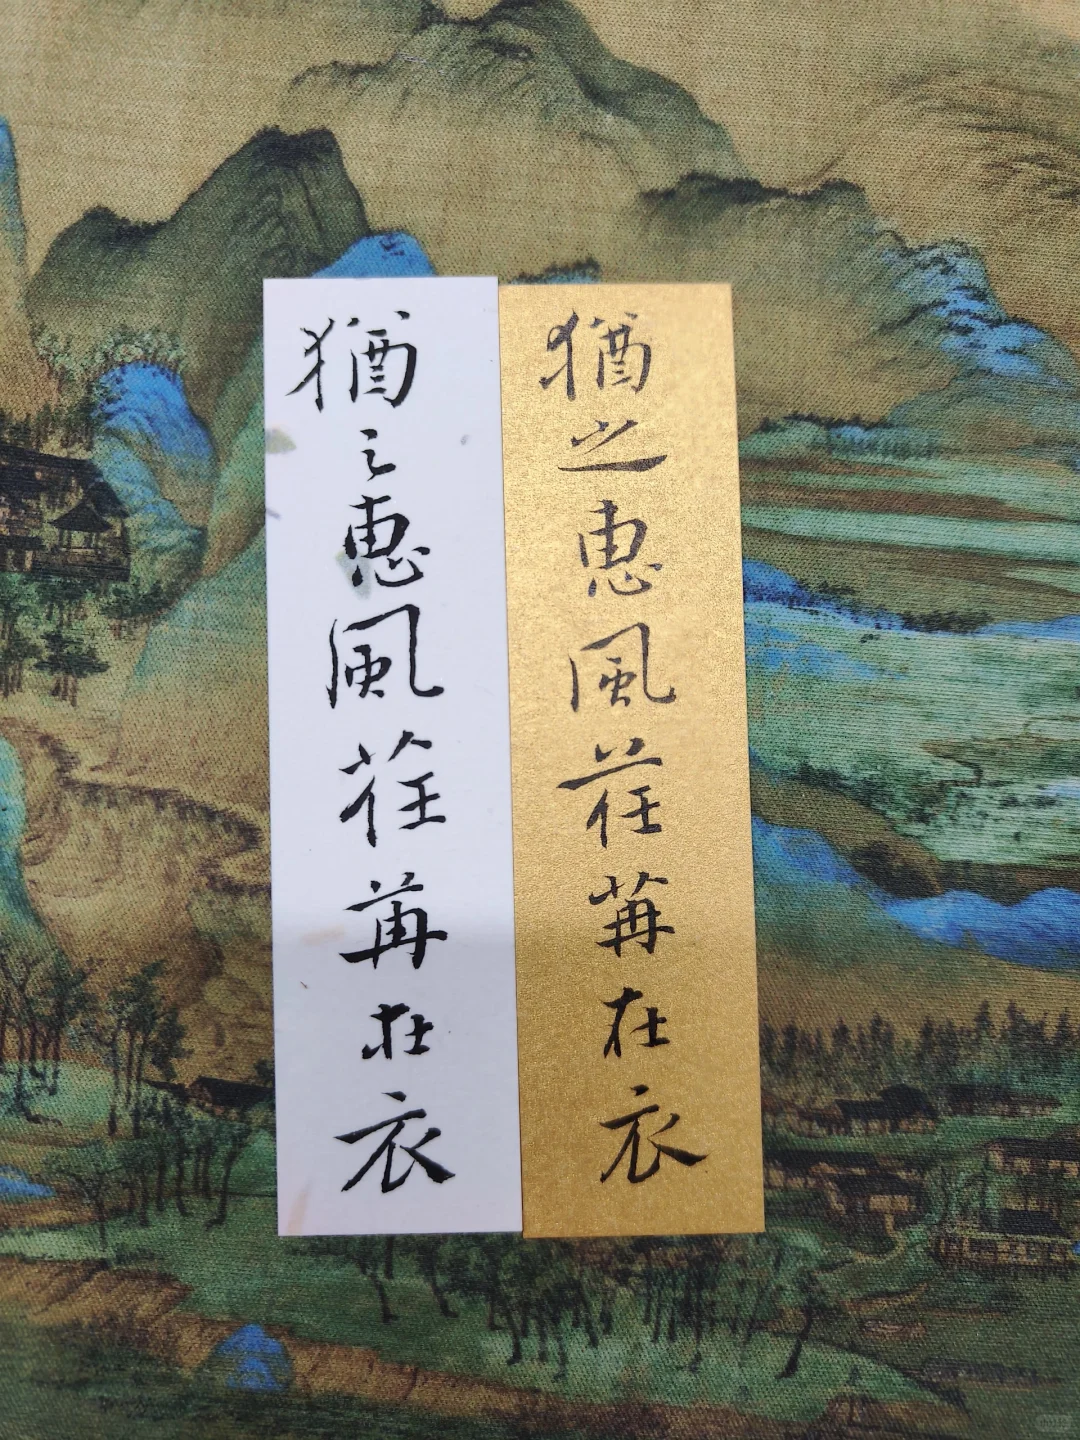 猶之惠風荏苒在衣
猶之惠風荏苒在衣